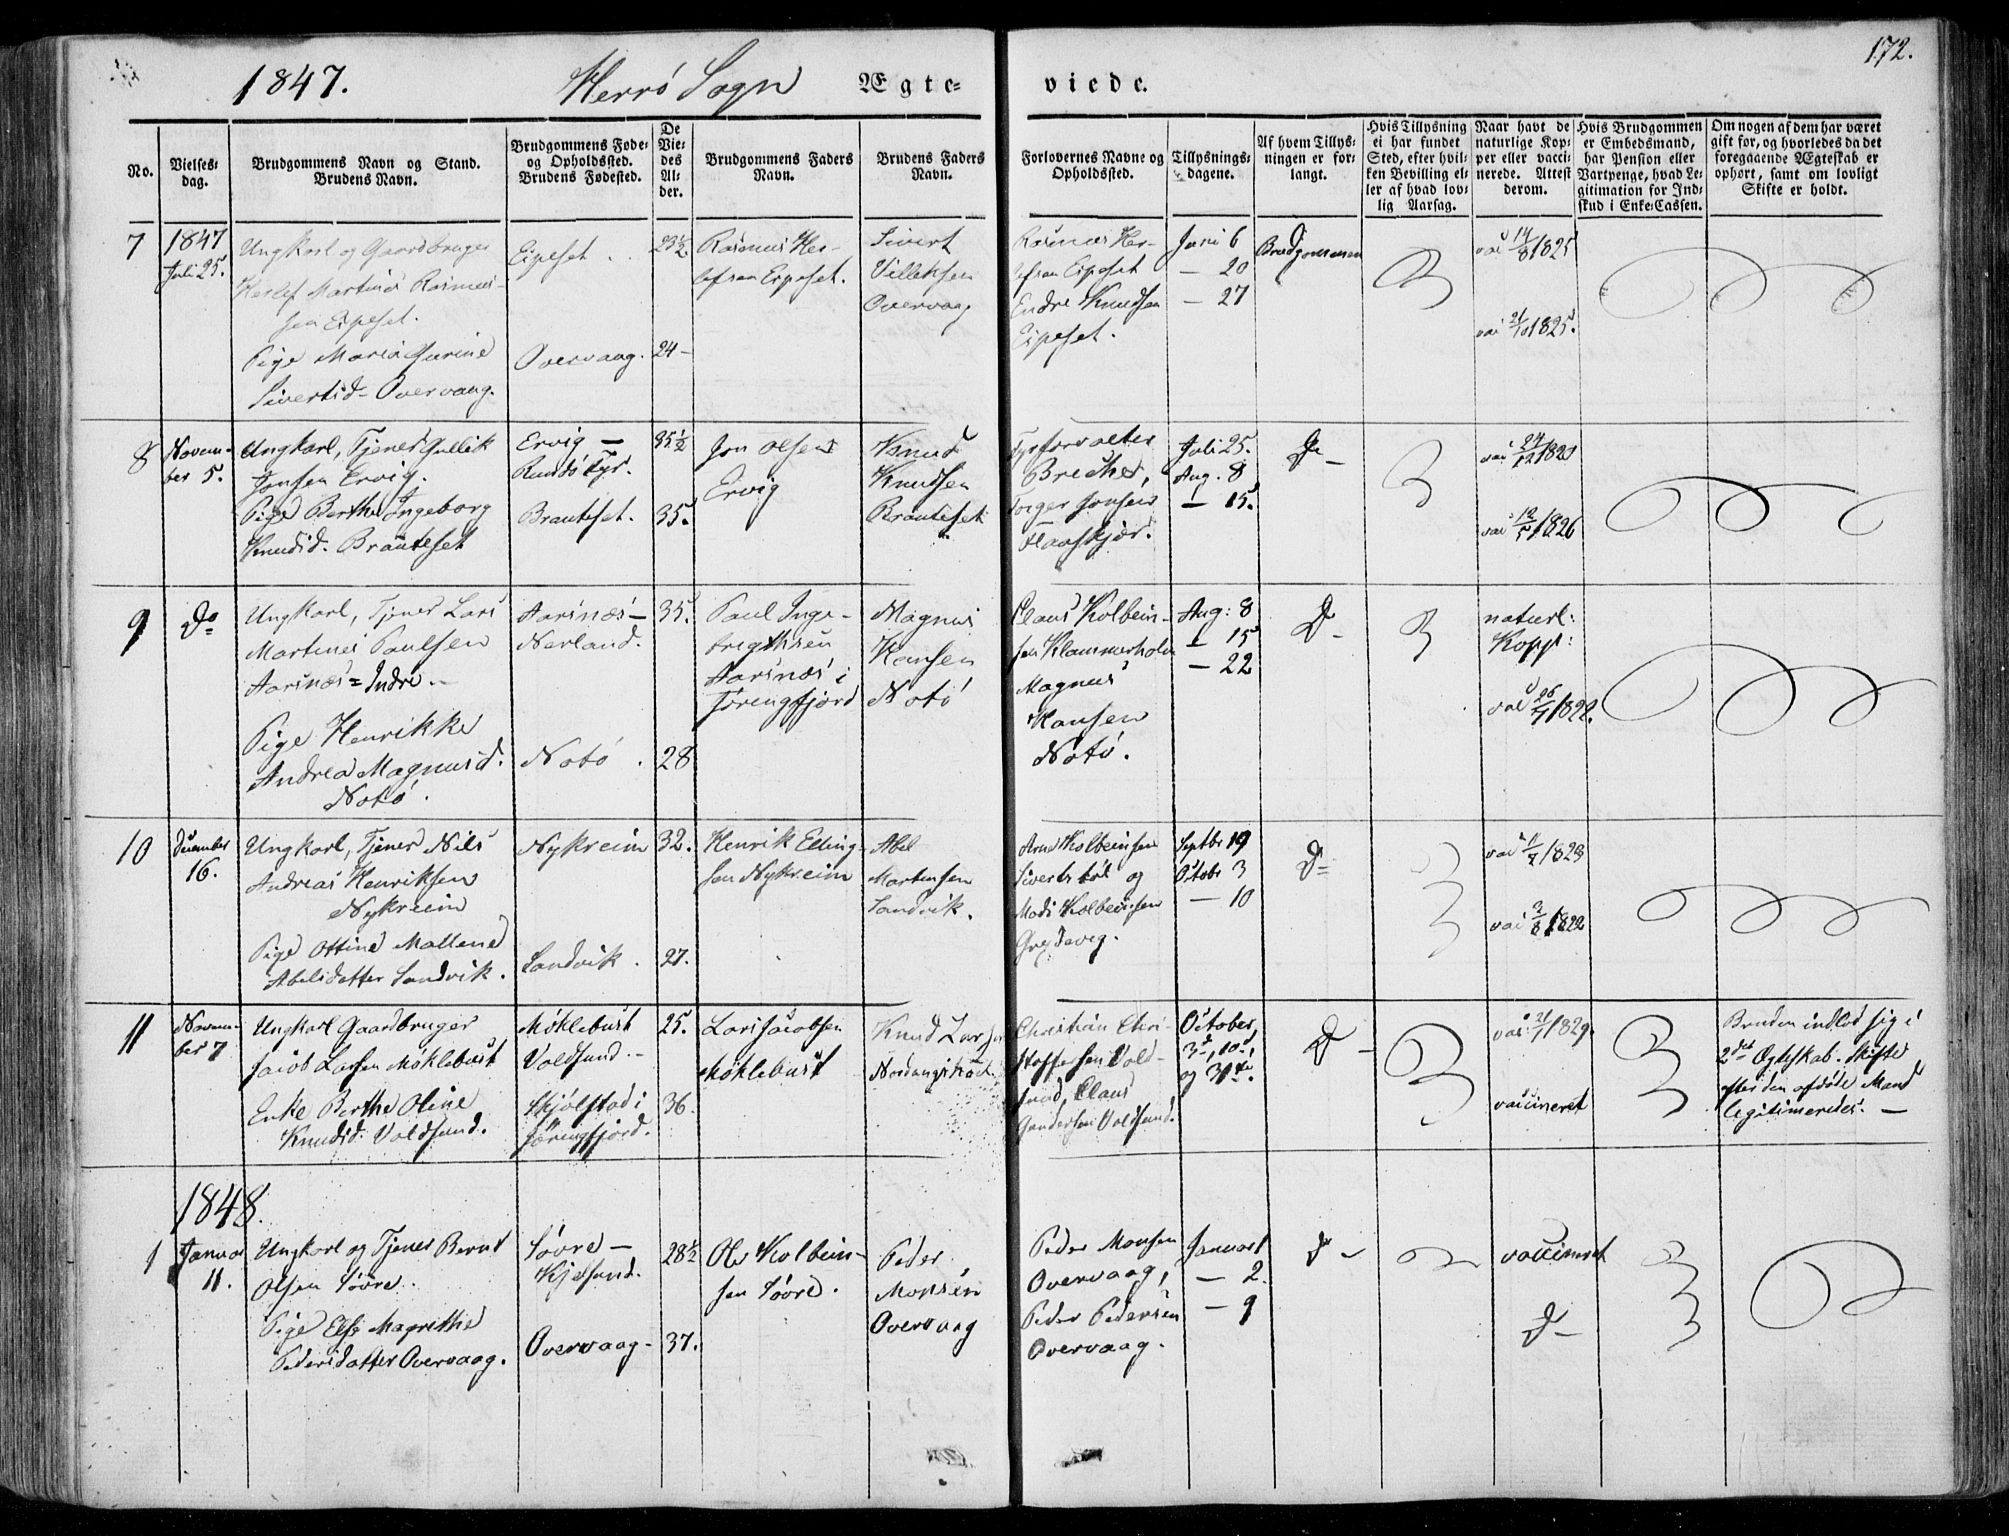 172.
1847. Herrö Sogn Ægte- viede.
No.
Vielses-
dag.
Brudgommens Navn og Stand.
Brudens Navn.
Brudgommens Føde-
og Opholdssted.
Brudens Fødested.
De
Vie-
des
Al-
der.
Brudgommens Faders
Navn.
Brudens Faders
Navn.
Forlovernes Navne og
Opholdssted.
Tillysnings-
dagene.
Af hvem Tillys-
ningen er for-
langt.
Hvis Tillysning
ei har fundet
Sted, efter hvil-
ken Bevilling el-
ler af hvad lov-
lig Aarsag.
Naar havt de
naturlige Kop-
per eller vacci-
nerede. Attest
derom.
Hvis Brudgommen
er Embedsmand,
har Pension eller
Vartpenge, hvad Le-
gitimation for Ind-
skud i Enke-Cassen.
Om nogen af dem har været
gift før, og hvorledes da det
foregaaende Ægteskab er
ophørt, samt om lovligt
Skifte er holdt.
7
1847
Juli 25.
Ungkarl og Gaardbruger
Herlef Martinus Rasmus-
sen Eipeset.
Pige Maria Gurine
Sivertsd. Overvaag.
Eipeset
Overvaag.
23 1/2
24
Rasmus Her-
lofsen Eipeset.
Sivert
Villeksen
Overvaag
Rasmus Her-
lofsen Eipeset
Endre Knudsen
Eipeset.
Juni 6
— 20
— 27
Brudgommen
vac 14/8 1825
vac 21/10 1825.
8
Novem-
ber 5.
Ungkarl, Tjener Gullik
Jonsen Ervig.
Pige Berthe Ingeborg
Knudsd. Brauteset
Ervig —
Rundö Fyr.
Brauteset.
35 1/2
35.
Jon Olsen
Ervig
Knud
Knudsen
Brauteset
Fyrforvalter
Brecher,
Torger Jonsen
Flaaskjær.
Juli 25.
Aug. 8
— 15.
Do
vac 24/12 1820
vac 12/5 1826
9
Do
Ungkarl, Tjener Lars
Martinus Paulsen
Aarsnæs Indre.
Pige Henrikke
Andrea Magnusd.
Notö.
Aarsnæs —
Nerland.
Notö.
35.
28
Paul Inge-
brigthsen
Aarsnæs i
Jörengfjord
Magnus
Hansen
Notö
Claus Kolbein-
sen Klammerholm
Magnus
Hansen
Notö.
Aug: 8
— 15
— 22
Do
naturl:
Kopp:
vac 26/7 1822.
10
December
16.
Ungkarl, Tjener Nils
Andreas Henriksen
Nykreim
Pige Ottine Mallene
Abelsdatter Sandvik.
Nykreim
Sandvik.
32.
27.
Henrik Elling-
sen Nykreim
Abel
Martinsen
Sandvik.
Arne Kolbeinsen
Sivertstöl og
Mads Kolbeinsen
Septbr 19
Octobr 3
— 10
Do
vac 11/7 1823
vac 2/8 1822
11
Novem-
ber 7
Ungkarl Gaardbruger
Jacob Larsen Möklebust
Enke Berthe Oline
Knudsd. Voldsund.
Möklebust
Voldsund.
Skjölstad i
Jöringfjord.
25.
36.
Lars Jacobsen
Möklebust
Knud Larsen
Christian Chri-
stoffersen Vold-
sund, Claus
Gundersen Voldsund.
October,
3d, 10d
og 31te.
Do
vac 21/7 1829
vaccineret
Bruden indlod sig i
2det Ægteskab. Skifte
efter den afdöde Mand
legitimeredes. —
1848.
1
Januar
11.
Ungkarl og Tjener Bernt
Olsen Sövre.
Pige Else Magrethe
Pedersdatter Overvaag.
Sövre —
Kjelsund.
Overvaag.
28 1/2
37.
Ole Kolbein-
sen Sövre.
Peder
Monsen
Overvaag
Peder Monsen
Overvaag,
Peder Pedersen
Overvaag.
Januar 1
— 2.
— 9
Do
vaccineret
Do